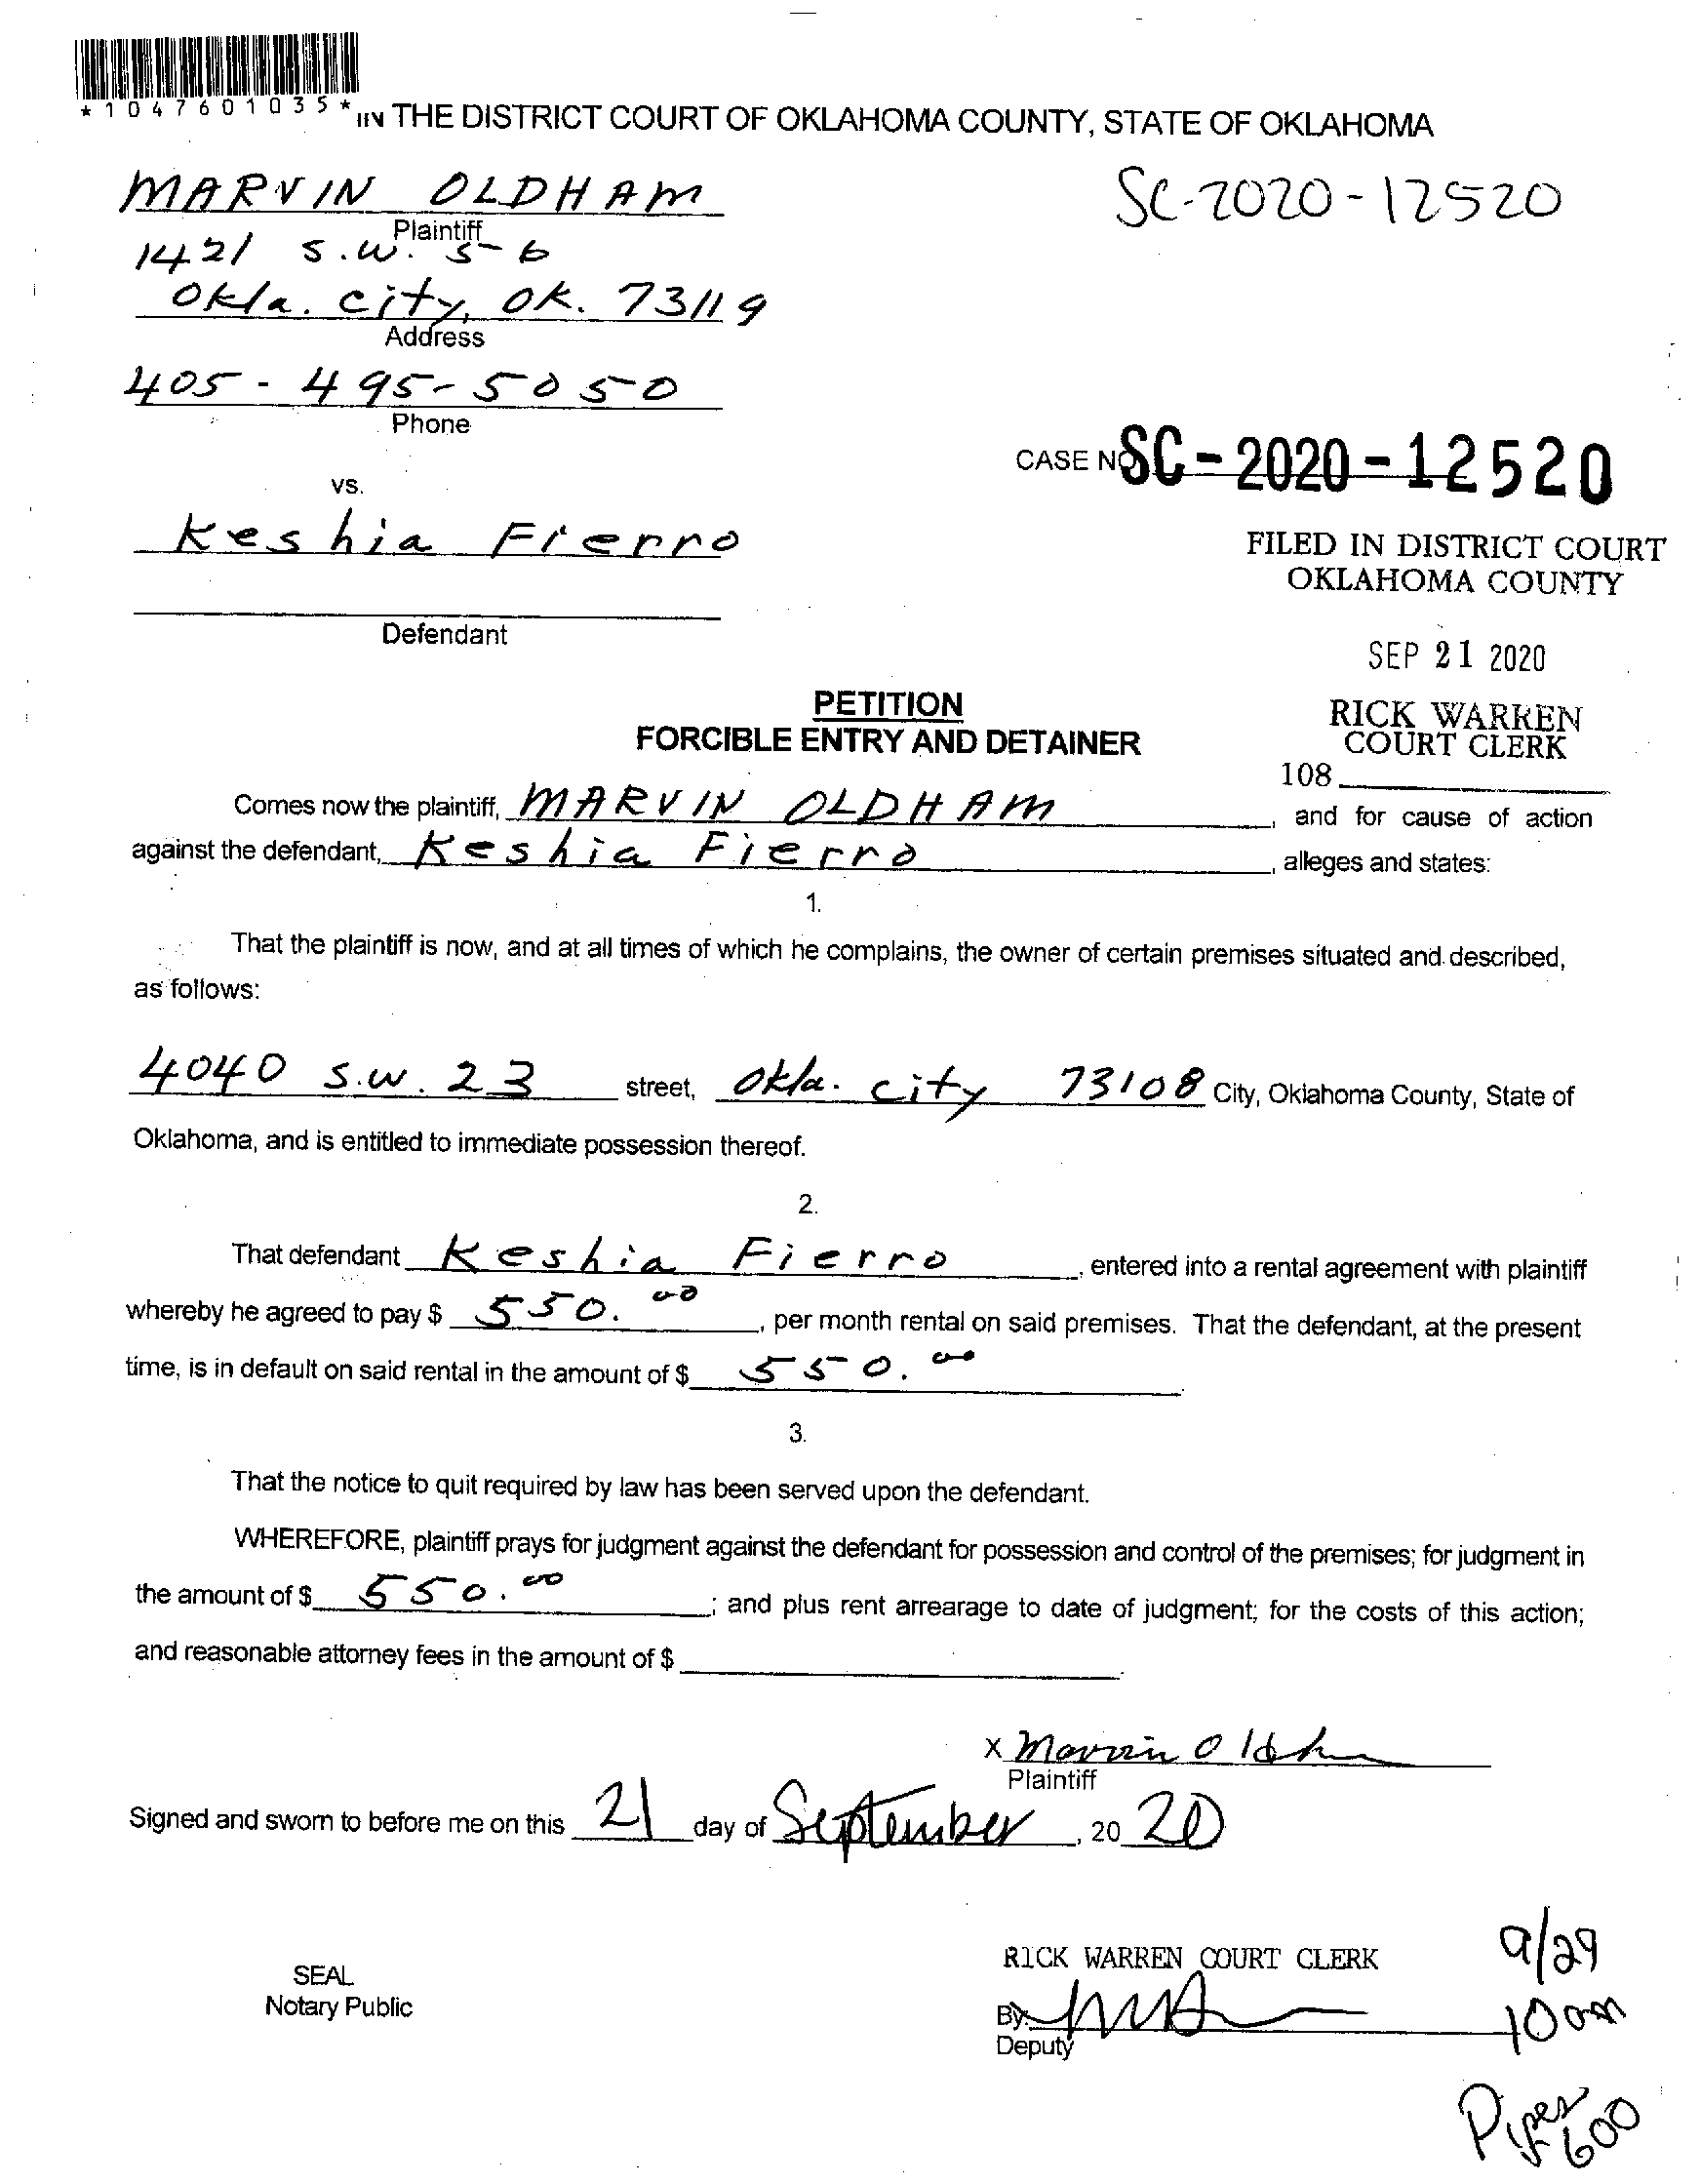 *1047601035*
IN THE DISTRICT COURT OF OKLAHOMA COUNTY, STATE OF OKLAHOMA
MARVIN OLDHAM
SC-2020-12520
Plaintiff
1421 S.W. 56
Okla. city, OK. 73119
Address
405-495-5050
Phone
CASE NO SC-2020-12520
vs.
Keshia Fierro
FILED IN DISTRICT COURT
OKLAHOMA COUNTY
Defendant
SEP 21 2020
PETITION
FORCIBLE ENTRY AND DETAINER
RICK WARREN
COURT CLERK
108
Comes now the plaintiff, MARVIN OLDHAM, and for cause of action
against the defendant, Keshia Fierro, alleges and states:
1.
That the plaintiff is now, and at all times of which he complains, the owner of certain premises situated and described,
as follows:
4040 S.W. 23 street, Okla. city 73108 City, Oklahoma County, State of
Oklahoma, and is entitled to immediate possession thereof.
2.
That defendant Keshia Fierro, entered into a rental agreement with plaintiff
whereby he agreed to pay $ 550.00, per month rental on said premises. That the defendant, at the present
time, is in default on said rental in the amount of $ 550.00
3.
That the notice to quit required by law has been served upon the defendant.
WHEREFORE, plaintiff prays for judgment against the defendant for possession and control of the premises; for judgment in
the amount of $ 550.00; and plus rent arrearage to date of judgment; for the costs of this action;
and reasonable attorney fees in the amount of $
X Marvin Oldham
Plaintiff
Signed and sworn to before me on this 21 day of September, 20 20
RICK WARREN COURT CLERK
9/29
SEAL
Notary Public
By:
10am
Deputy
600